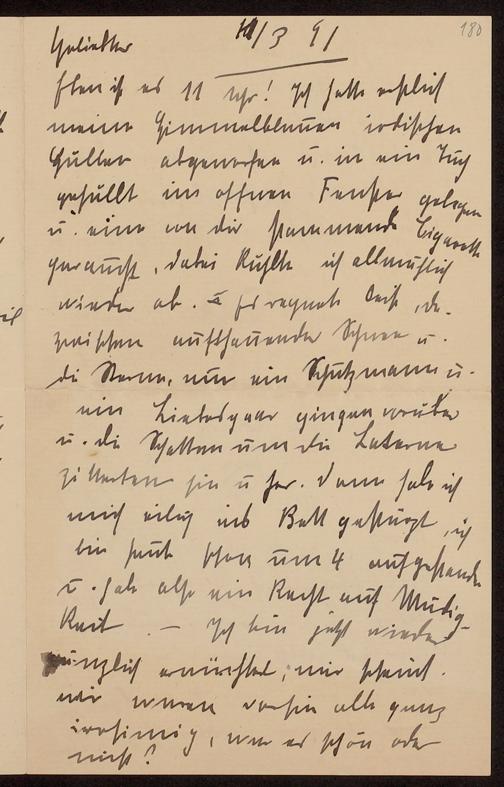 180
Geliebter 11/3 91
Eben ist es 11 Uhr! Ich hatte endlich
meine himmelblauen irdischen
Hüllen abgeworfen u. in ein Tuch
gehüllt im offnen Fenster gelegen
u. eine von dir stammende Cigarette
geraucht, dabei kühlte ich allmählich
wieder ab. Es regnete leise, da-
zwischen aufthauender Schnee u.
die Sterne, nur ein Schutzmann u.
ein Liebespaar gingen vorüber
u. die Schatten um die Laterne
zitterten hin u her. Dann habe ich
mich eilig ins Bett gestürzt, ich
bin heute schon um 4 aufgestanden
u. habe also ein Recht auf Müdig-
keit. — Ich bin jetzt wieder
gänzlich ernüchtert, mir scheint
wir waren vorhin alle ganz
irrsinnig, war es schön oder
nicht?